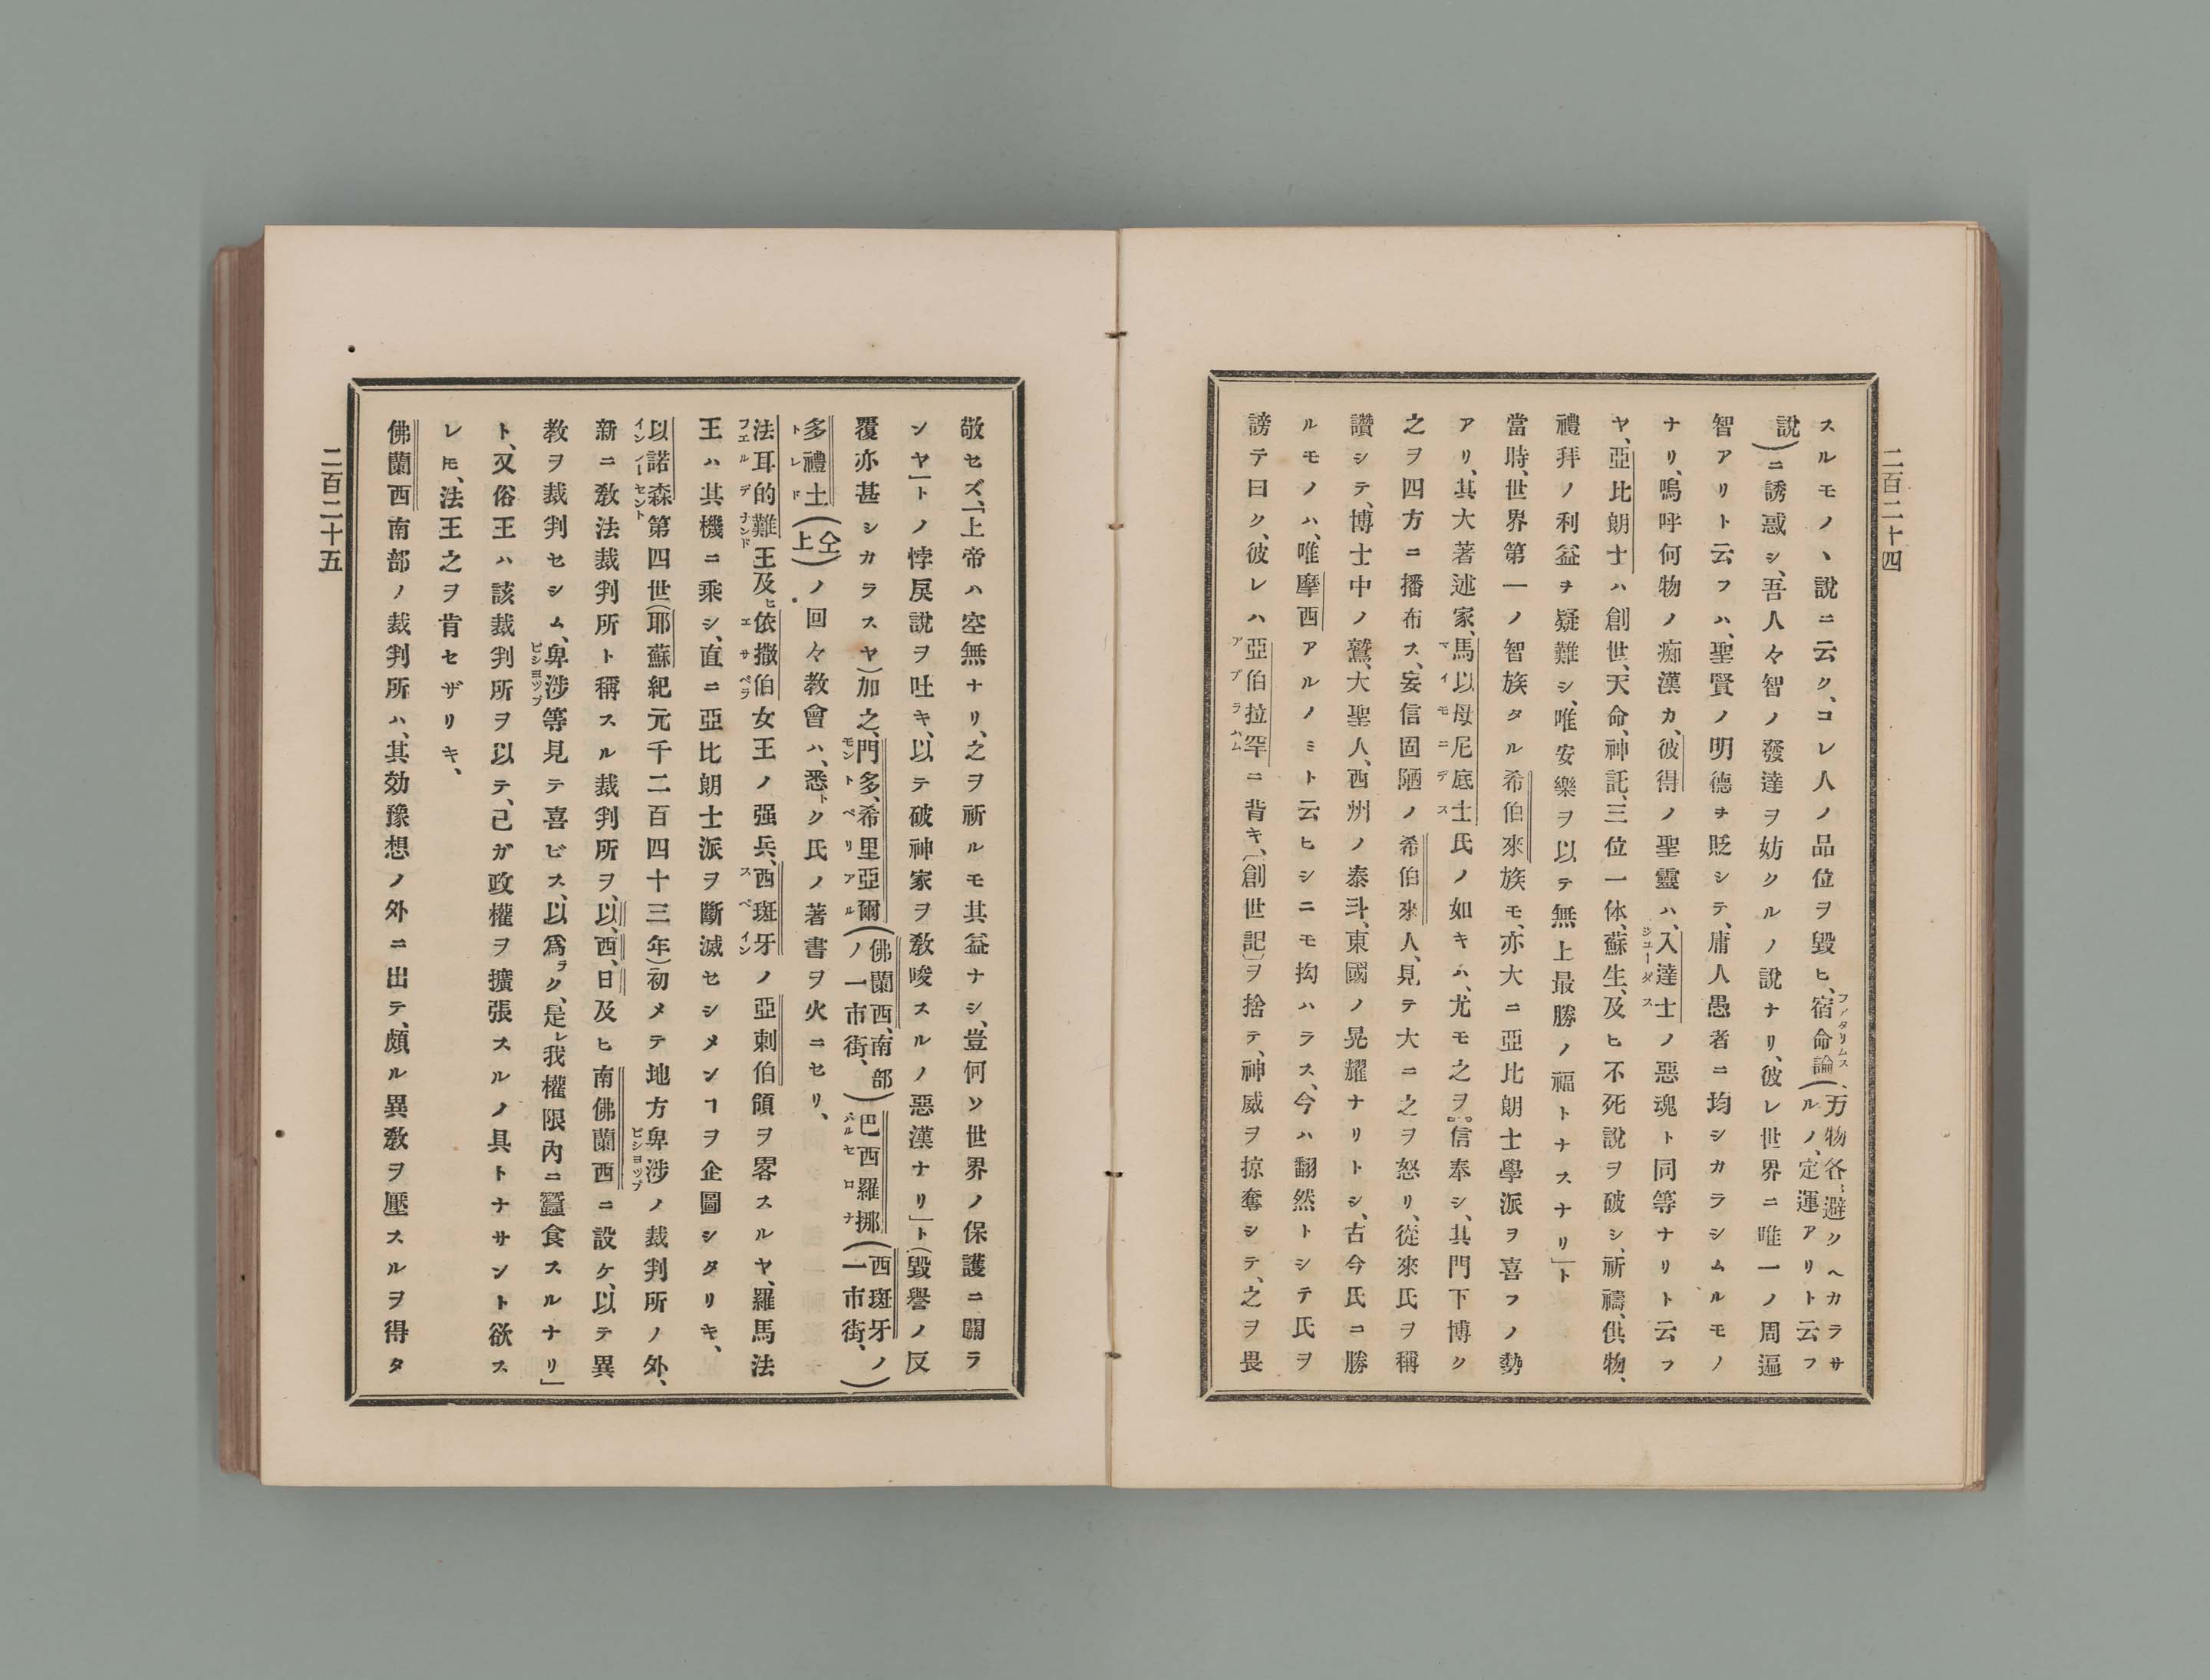 二百二十四
スルモノヽ說ニ云ク、コレ人ノ品位ヲ毀ヒ、宿命論(万物各〻避クヘカラサルノ、定運アリト云フ
ファタリムス
說)ニ誘惑シ、吾人々智ノ發達ヲ妨クルノ說ナリ、彼レ世界ニ唯一ノ周遍
智アリト云フハ、聖賢ノ明德ヲ貶シテ、庸人愚者ニ均シカラシムルモノ
ナリ、嗚呼何物ノ痴漢カ、彼得ノ聖靈ハ、入達士ノ惡魂ト同等ナリト云フ
ジユーダス
ヤ、亞比朗士ハ創世、天命、神託、三位一体、蘇生、及ヒ不死說ヲ破シ、祈禱、供物、
禮拜ノ利益ヲ疑難シ、唯安樂ヲ以テ無上最勝ノ福トナスナリ」ト
當時、世界第一ノ智族タル希伯來族モ、亦大ニ亞比朗士學派ヲ喜フノ勢
アリ、其大著述家、馬以母尼底士氏ノ如キハ、尤モ之ヲ信奉シ、其門下博ク
マイモニデス
之ヲ四方ニ播布ス、妄信固陋ノ希伯來人、見テ大ニ之ヲ怒リ、從來氏ヲ稱
讚シテ、博士中ノ鷲、大聖人、西州ノ泰斗、東國ノ晃耀ナリトシ、古今氏ニ勝
ルモノハ、唯摩西アルノミト云ヒシニモ拘ハラス、今ハ翻然トシテ氏ヲ
謗テ曰ク、彼レハ亞伯拉罕ニ背キ、(創世記)ヲ捨テ、神威ヲ掠奪シテ、之ヲ畏
アブラハム
敬セズ、「上帝ハ空無ナリ、之ヲ祈ルモ其益ナシ、豈何ソ世界ノ保護ニ關ラ
ンヤ」トノ悖戾說ヲ吐キ、以テ破神家ヲ敎唆スルノ惡漢ナリ」ト(毀譽ノ反
覆亦甚シカラスヤ)加之、門多、希里亞爾(佛蘭西、南部ノ一市街、)巴西羅挪(西斑牙ノ一市街、)
モントペリアル
バルセロナ
多禮土(仝上)ノ回々教會ハ、悉トク氏ノ著書ヲ火ニセリ、
トレド
法耳的難王及ヒ依撒伯女王ノ强兵、西斑牙ノ亞剌伯領ヲ畧スルヤ、羅馬法
フエルデナンド
エサベラ
スペイン
王ハ其機ニ乘シ、直ニ亞比朗士派ヲ斷滅セシメンヿヲ企圖シタリキ、
以諾森第四世(耶蘇紀元千二百四十三年)初メテ地方卑涉ノ裁判所ノ外、
インノーセント
ビシヨップ
新ニ敎法裁判所ト稱スル裁判所ヲ、以、西、日及ヒ南佛蘭西ニ設ケ、以テ異
教ヲ裁判セシム、卑涉等見テ喜ビス、以爲ラク、是レ我權限內ニ蠶食スルナリ」
ビシヨップ
ト、又俗王ハ該裁判所ヲ以テ、己ガ政權ヲ擴張スルノ具トナサント欲ス
レ𪜈、法王之ヲ肯セザリキ、
佛蘭西南部ノ裁判所ハ、其効豫想ノ外ニ出テ、頗ル異敎ヲ壓スルヲ得タ
二百二十五